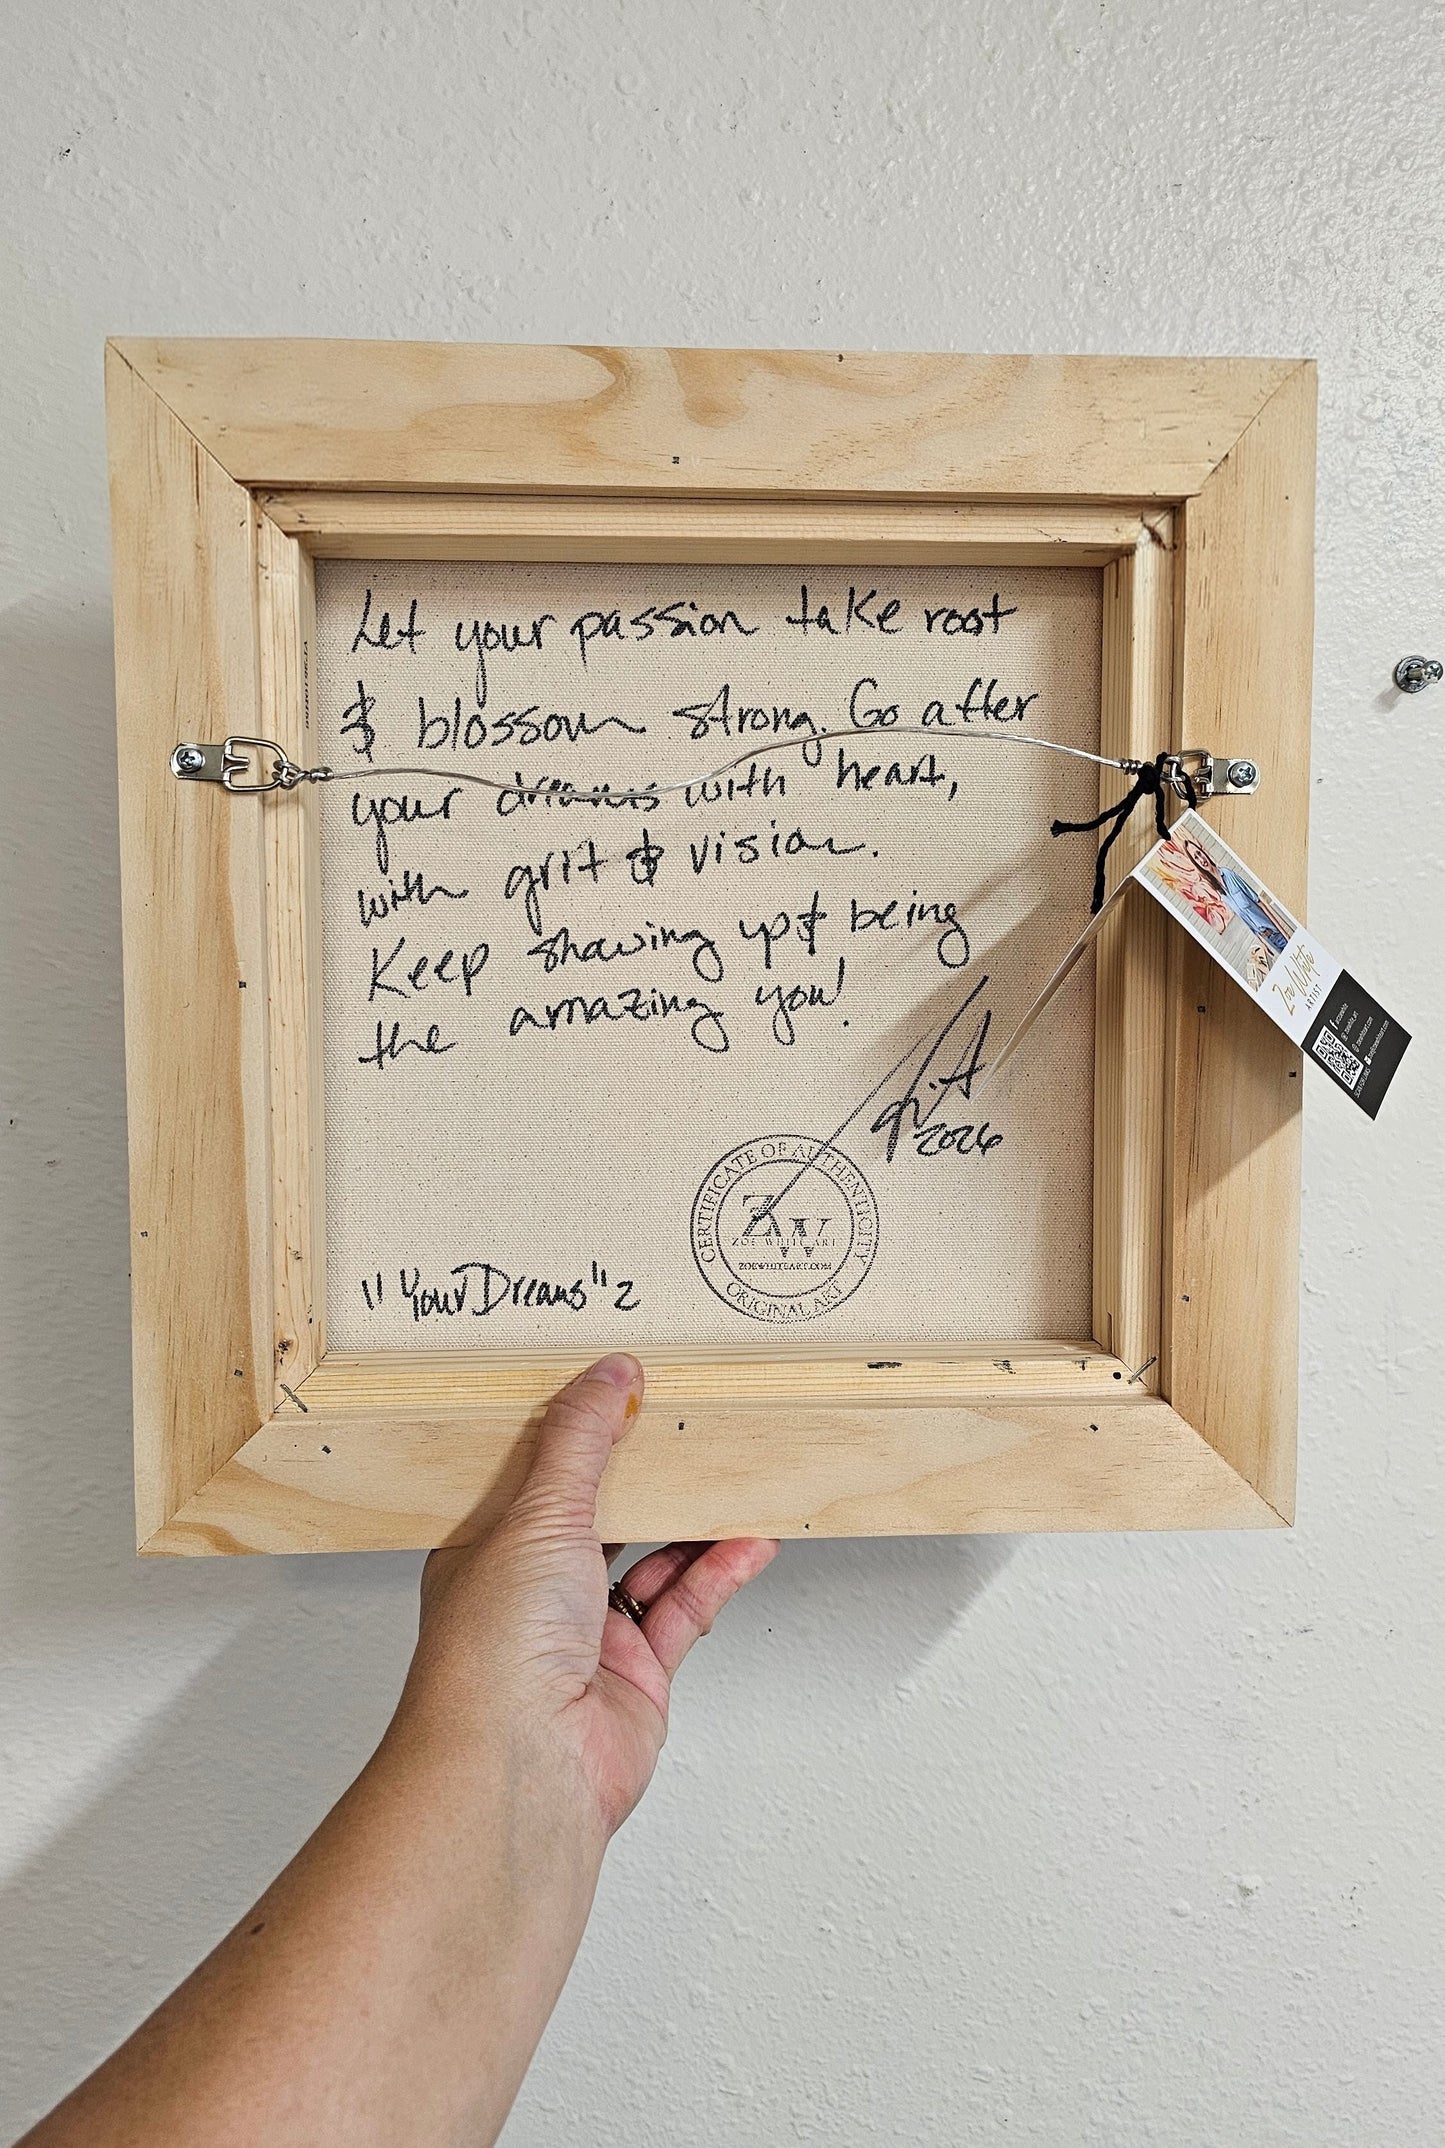 Let your passion take root
& blossom strong. Go after
your dreams with heart,
with grit & vision.
Keep showing up & being
the amazing you!
2026
"Your Dreams" 2
CERTIFICATE OF AUTHENTICITY
ZW
ZOE WHITE ART
ZOEWHITEART.COM
ORIGINAL ART
Zoe White
ARTIST